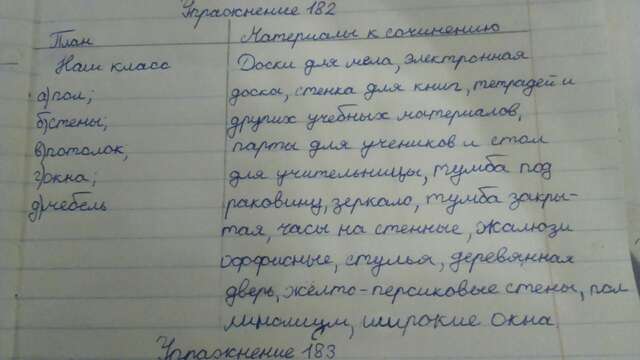 Упражнение 182
План Материалы к сочинению
Наш класс Доски для мела, электронная
а) пол; доска, стенка для книг, тетрадей и
б) стены; других учебных материалов,
в) потолок, парты для учеников и стол
г) окна; для учительницы, тумба под
д) мебель раковину, зеркало, тумба закры-
тая, часы на стенные, жалюзи
оффисные, стулья, деревянная
дверь, жёлто-персиковые стены, пол
линолиум, широкие окна
Упражнение 183